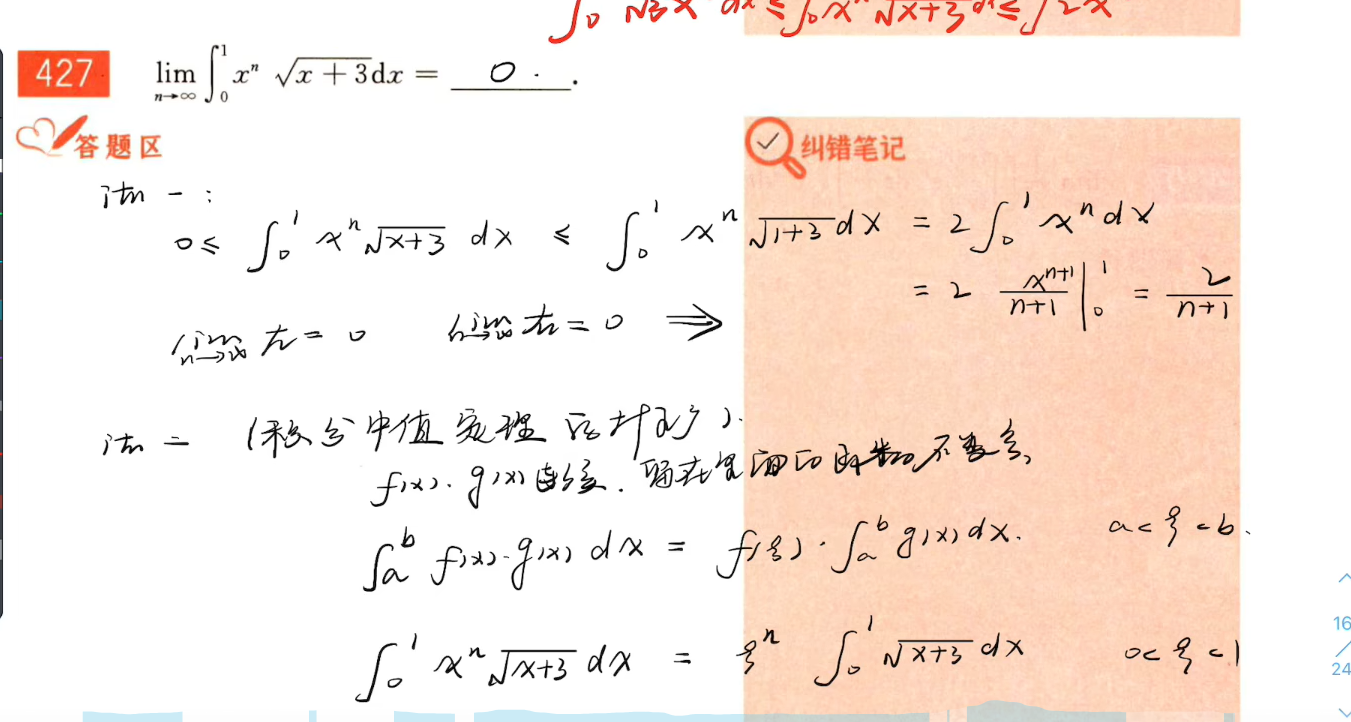 ∫₀ √3 xⁿ dx ≤ ∫₀ xⁿ √x+3 dx ≤ ∫ 2x
427 lim n→∞ ∫₀¹ xⁿ √(x+3) dx = 0 .
答题区
纠错笔记
法一:
0 ≤ ∫₀¹ xⁿ √(x+3) dx ≤ ∫₀¹ xⁿ √(1+3) dx = 2 ∫₀¹ xⁿ dx
= 2 xⁿ⁺¹/(n+1) |₀¹ = 2/(n+1)
lim n→∞ 左 = 0 lim n→∞ 右 = 0 ⇒
法二 (积分中值定理 ).
f(x). g(x) 连续. 不变号,
∫ₐᵇ f(x)·g(x) dx = f(ξ)·∫ₐᵇ g(x) dx. a<ξ<b.
∫₀¹ xⁿ √(x+3) dx = ξⁿ ∫₀¹ √(x+3) dx 0<ξ<1
16
24